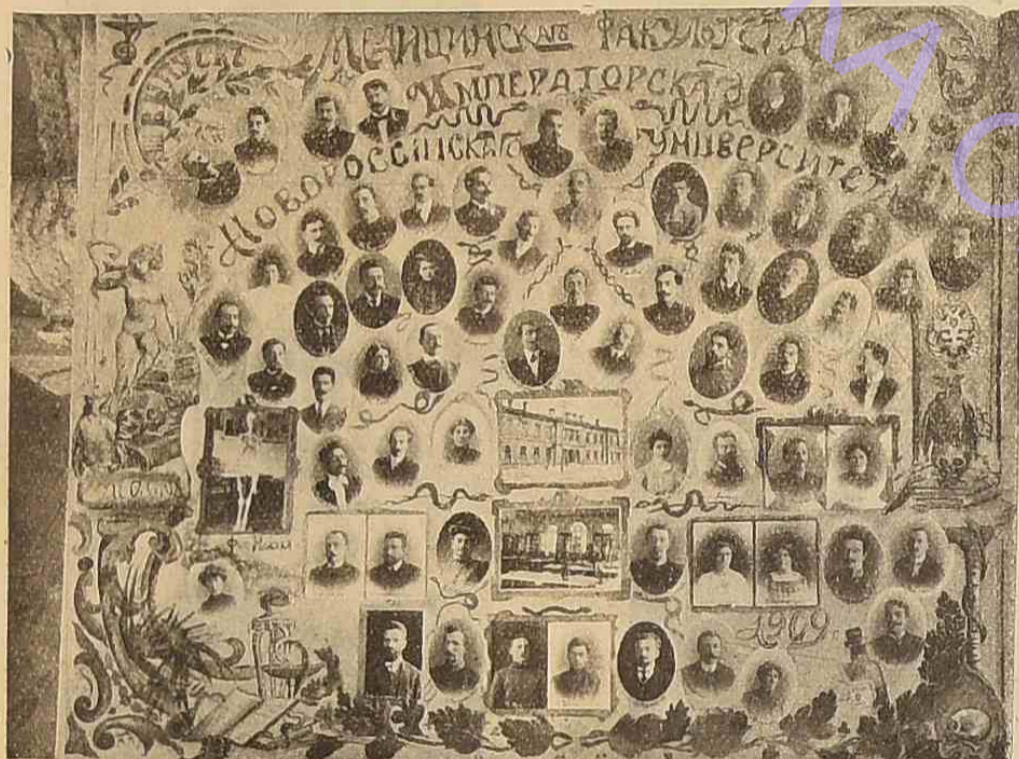 ВЫПУСКЪ
МЕДИЦИНСКАГО ФАКУЛЬТЕТА
ИМПЕРАТОРСКАГО
НОВОРОССІЙСКАГО УНИВЕРСИТЕТА
1909